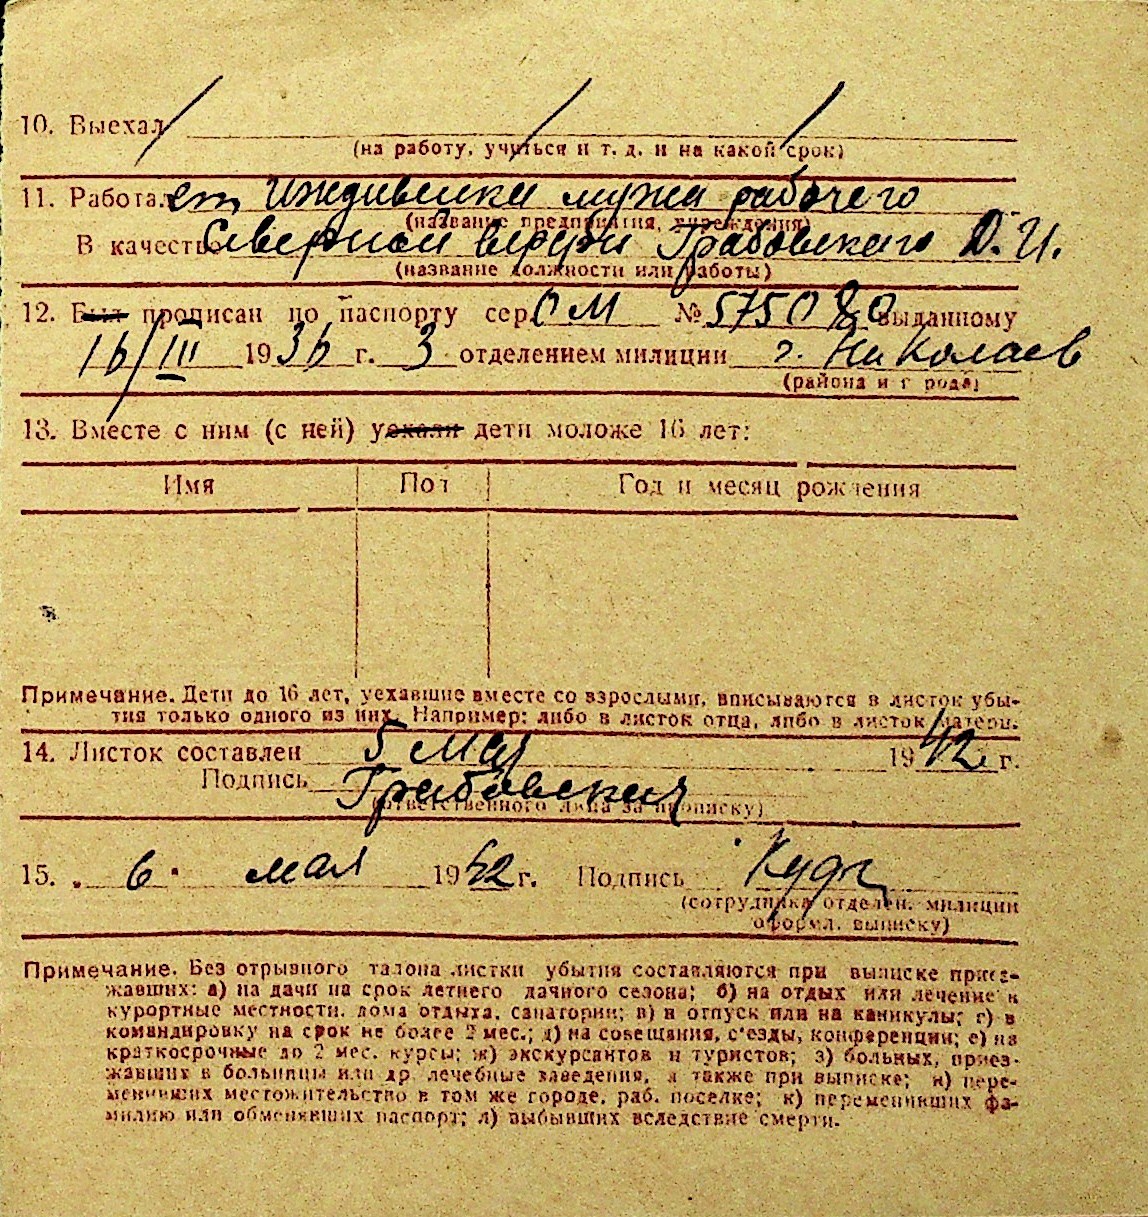 10. Выехал
(на работу, учиться и т. д. и на какой срок)
11. Работает иждивенка мужа рабочего
(название предприятия, учреждения)
В качестве Северной верфи Грабовского Д. И.
(название должности или работы)
12. Был прописан по паспорту сер. ОМ № 575080 выданному
16/III 1936 г. 3 отделением милиции г. Николаев
(района и города)
13. Вместе с ним (с ней) уехали дети моложе 16 лет:
Имя Пол Год и месяц рождения
Примечание. Дети до 16 лет, уехавшие вместе со взрослыми, вписываются в листок убы-
тия только одного из них. Например: либо в листок отца, либо в листок матери.
14. Листок составлен 5 мая 1942 г.
Подпись Грабовская
(ответственного лица за прописку)
15. 6 мая 1942 г. Подпись
(сотрудника отделен. милиции
оформл. выписку)
Примечание. Без отрывного талона листки убытия составляются при выписке приез-
жавших: а) на дачи на срок летнего дачного сезона; б) на отдых или лечение в
курортные местности, дома отдыха, санатории; в) в отпуск или на каникулы; г) в
командировку на срок не более 2 мес.; д) на совещания, с'езды, конференции; е) на
краткосрочные до 2 мес. курсы; ж) экскурсантов и туристов; з) больных, приез-
жавших в больницы или др. лечебные заведения, а также при выписке; и) пере-
менивших местожительство в том же городе, раб. поселке; к) переменивших фа-
милию или обменявших паспорт; л) выбывших вследствие смерти.